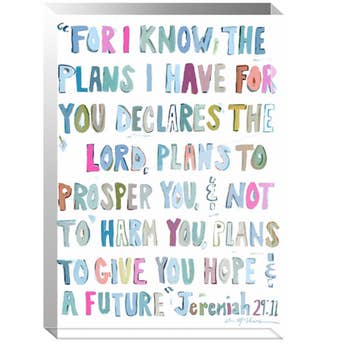 "FOR I KNOW, THE
PLANS I HAVE FOR
YOU DECLARES THE
LORD, PLANS TO
PROSPER YOU, & NOT
TO HARM YOU, PLANS
TO GIVE YOU HOPE &
A FUTURE" Jeremiah 29:11